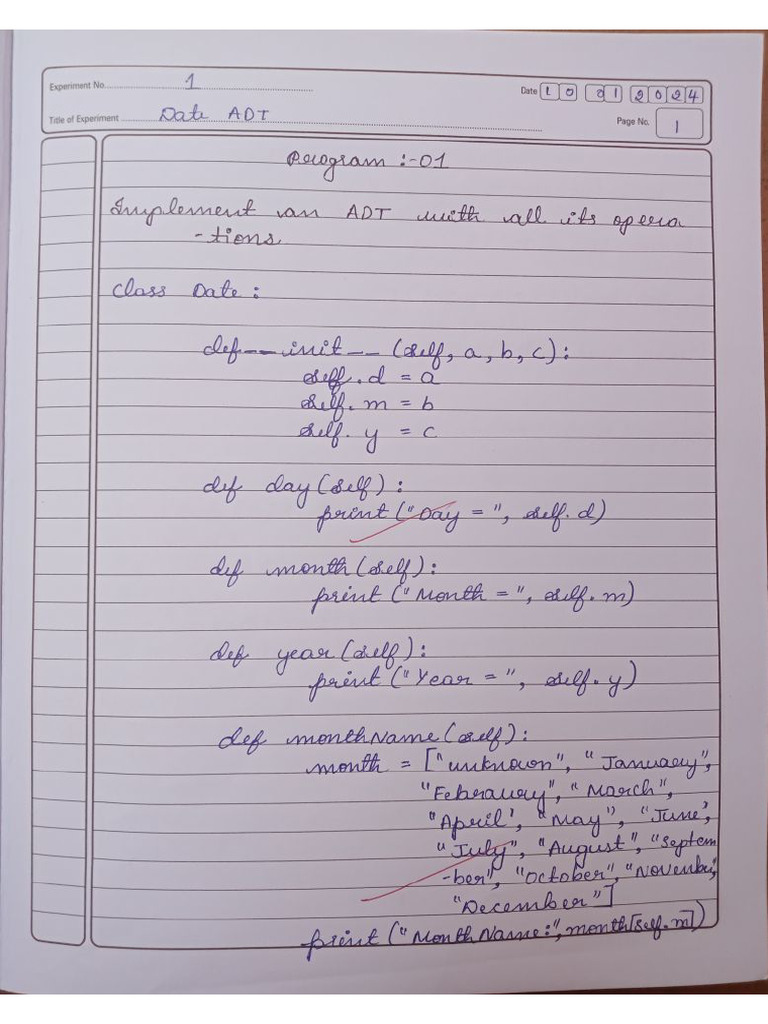 Experiment No. 1
Date 10 01 2024
Title of Experiment Date ADT
Page No. 1
Program :-01
Implement an ADT with all its opera
-tions.
Class Date :
def __init__ (self, a, b, c):
self.d = a
self.m = b
self.y = c
def day(self) :
print("Day = ", self.d)
def month(self):
print("Month = ", self.m)
def year(self):
print("Year = ", self.y)
def monthName(self):
month = ["unknown", "January",
"Febrauary", "March",
"April', "May", "June',
"July", "August", "Septem
-ber", "October", "November',
"December"]
print("MonthName:",month[self.m])